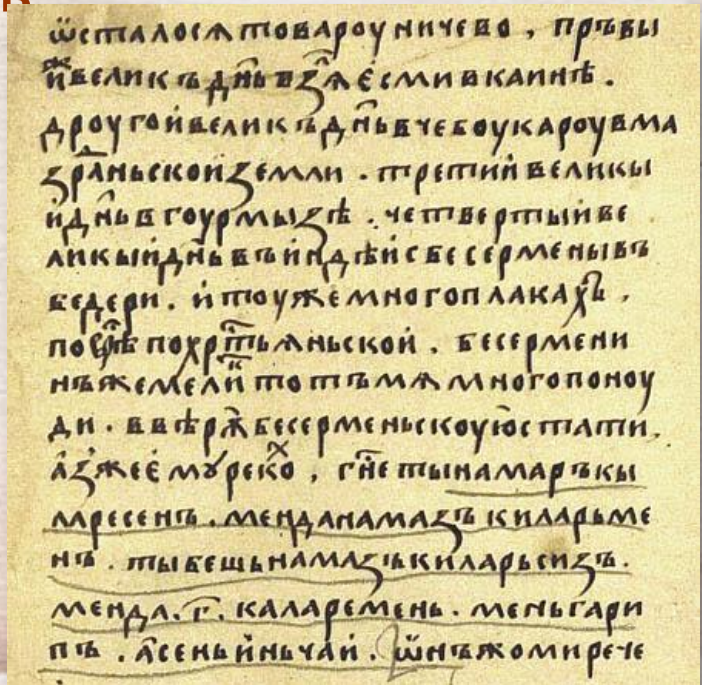 ѿсталосѧ товароу ничево , пръвы
и҆ж великъ дн҃ь взѧ҃ е҆сми в каинѣ .
дроугои҆ великъ дн҃ь в чебоукароу в ма
здраⷩ҇ньскои҆ земли . третии҆ великы
и҆ дн҃ь в гоурмызѣ . четвертыи҆ ве
ликыи҆ дн҃ь въ и҆ндѣи҆ с бесермены въ
бедери . и҆ тоу же много плакаⷯъ .
по вѣрѣ по хрⷭ҇тьѧньскои҆ . бесермени
нъ же мелиⷦ тотъ мѧ много поноу
ди . в вѣрѫ бесерменьскоую стати .
а҆зъ же е҆мꙋ рекоⷯ , гн҃е ты намаръ кы
ларесенъ . менда намазъ киларьме
нъ . ты бешь намазъ киларьсизъ .
менда . г҃ . каларемень . мень гари
пъ . а҆сень и҆ньчаи҆ . ѡ҆нъ жо ми рече